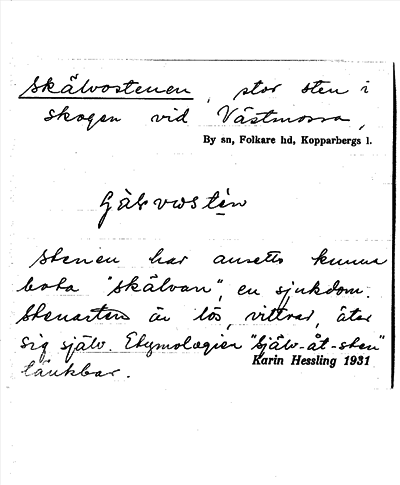 Skälvostenen, stor sten i
skogen vid Västmossa,
By sn, Folkare hd, Kopparbergs l.
stenen har ansetts kunna
bota "skälvan", en sjukdom.
Stenarten är lös, vittrar, äter
sig själv. Etymologien "Själv-åt-sten"
Karin Hessling 1931
tänkbar.